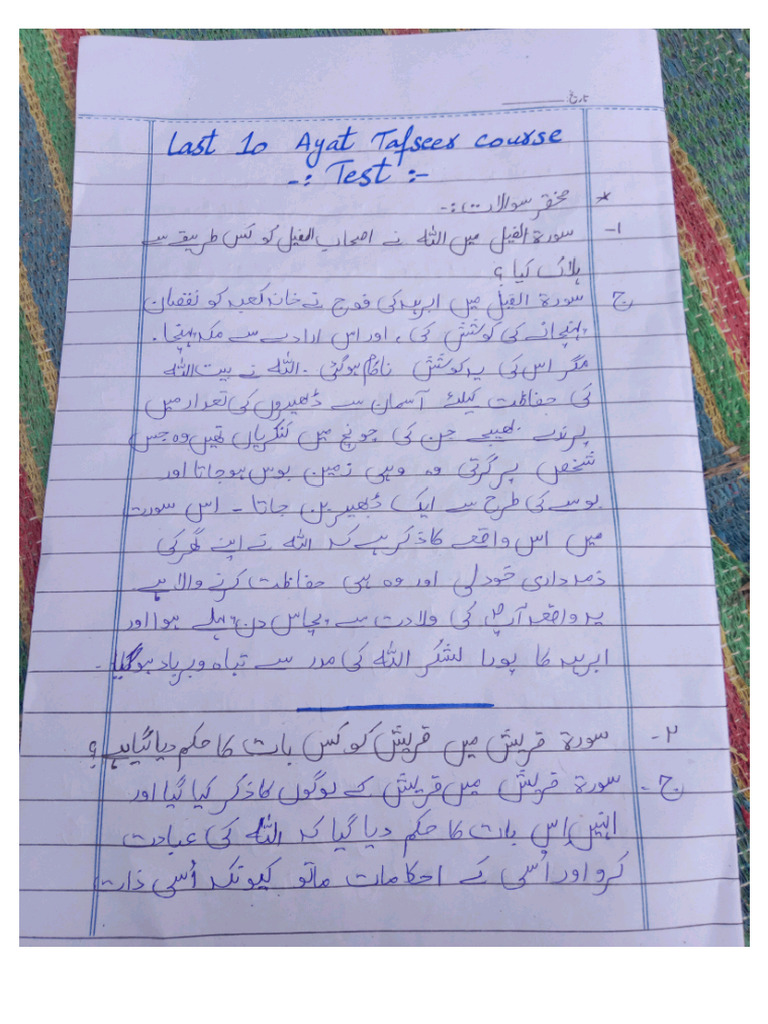 تاریخ
Last 10 Ayat Tafseer course
-: Test :-
* مختصر سوالات :-
۱- سورۃ الفیل میں اللہ نے اصحاب الفیل کو کس طریقے سے
ہلاک کیا ؟
ج سورۃ الفیل میں ابرہہ کی فوج نے خانہ کعبہ کو نقصان
پہنچانے کی کوشش کی، اور اس ارادے سے مکہ پہنچا.
مگر اس کی یہ کوشش ناکام ہوگئی. اللہ نے بیت اللہ
کی حفاظت کیلئے آسمان سے ڈھیروں کی تعداد میں
پرندے بھیجے جن کی چونچ میں کنکریاں تھیں وہ جس
شخص پر گرتی وہ وہی زمین بوس ہوجاتا اور
بوسے کی طرح سے ایک ڈھیر بن جاتا - اس سورت
میں اس واقعے کا ذکر ہے کہ اللہ نے اپنے گھر کی
ذمہ داری خود لی اور وہ ہی حفاظت کرنے والا ہے
یہ واقعہ آپؐ کی ولادت سے پچاس دن پہلے ہوا اور
ابرہہ کا پورا لشکر اللہ کی مدد سے تباہ و برباد ہوگیا -
۲- سورۃ قریش میں قریش کو کس بات کا حکم دیا گیا ہے ؟
ج- سورۃ قریش میں قریش کے لوگوں کا ذکر کیا گیا اور
انہیں اِس بات کا حکم دیا گیا کہ اللہ کی عبادت
کرو اور اُسی کے احکامات مانو کیونکہ اُسی ذات